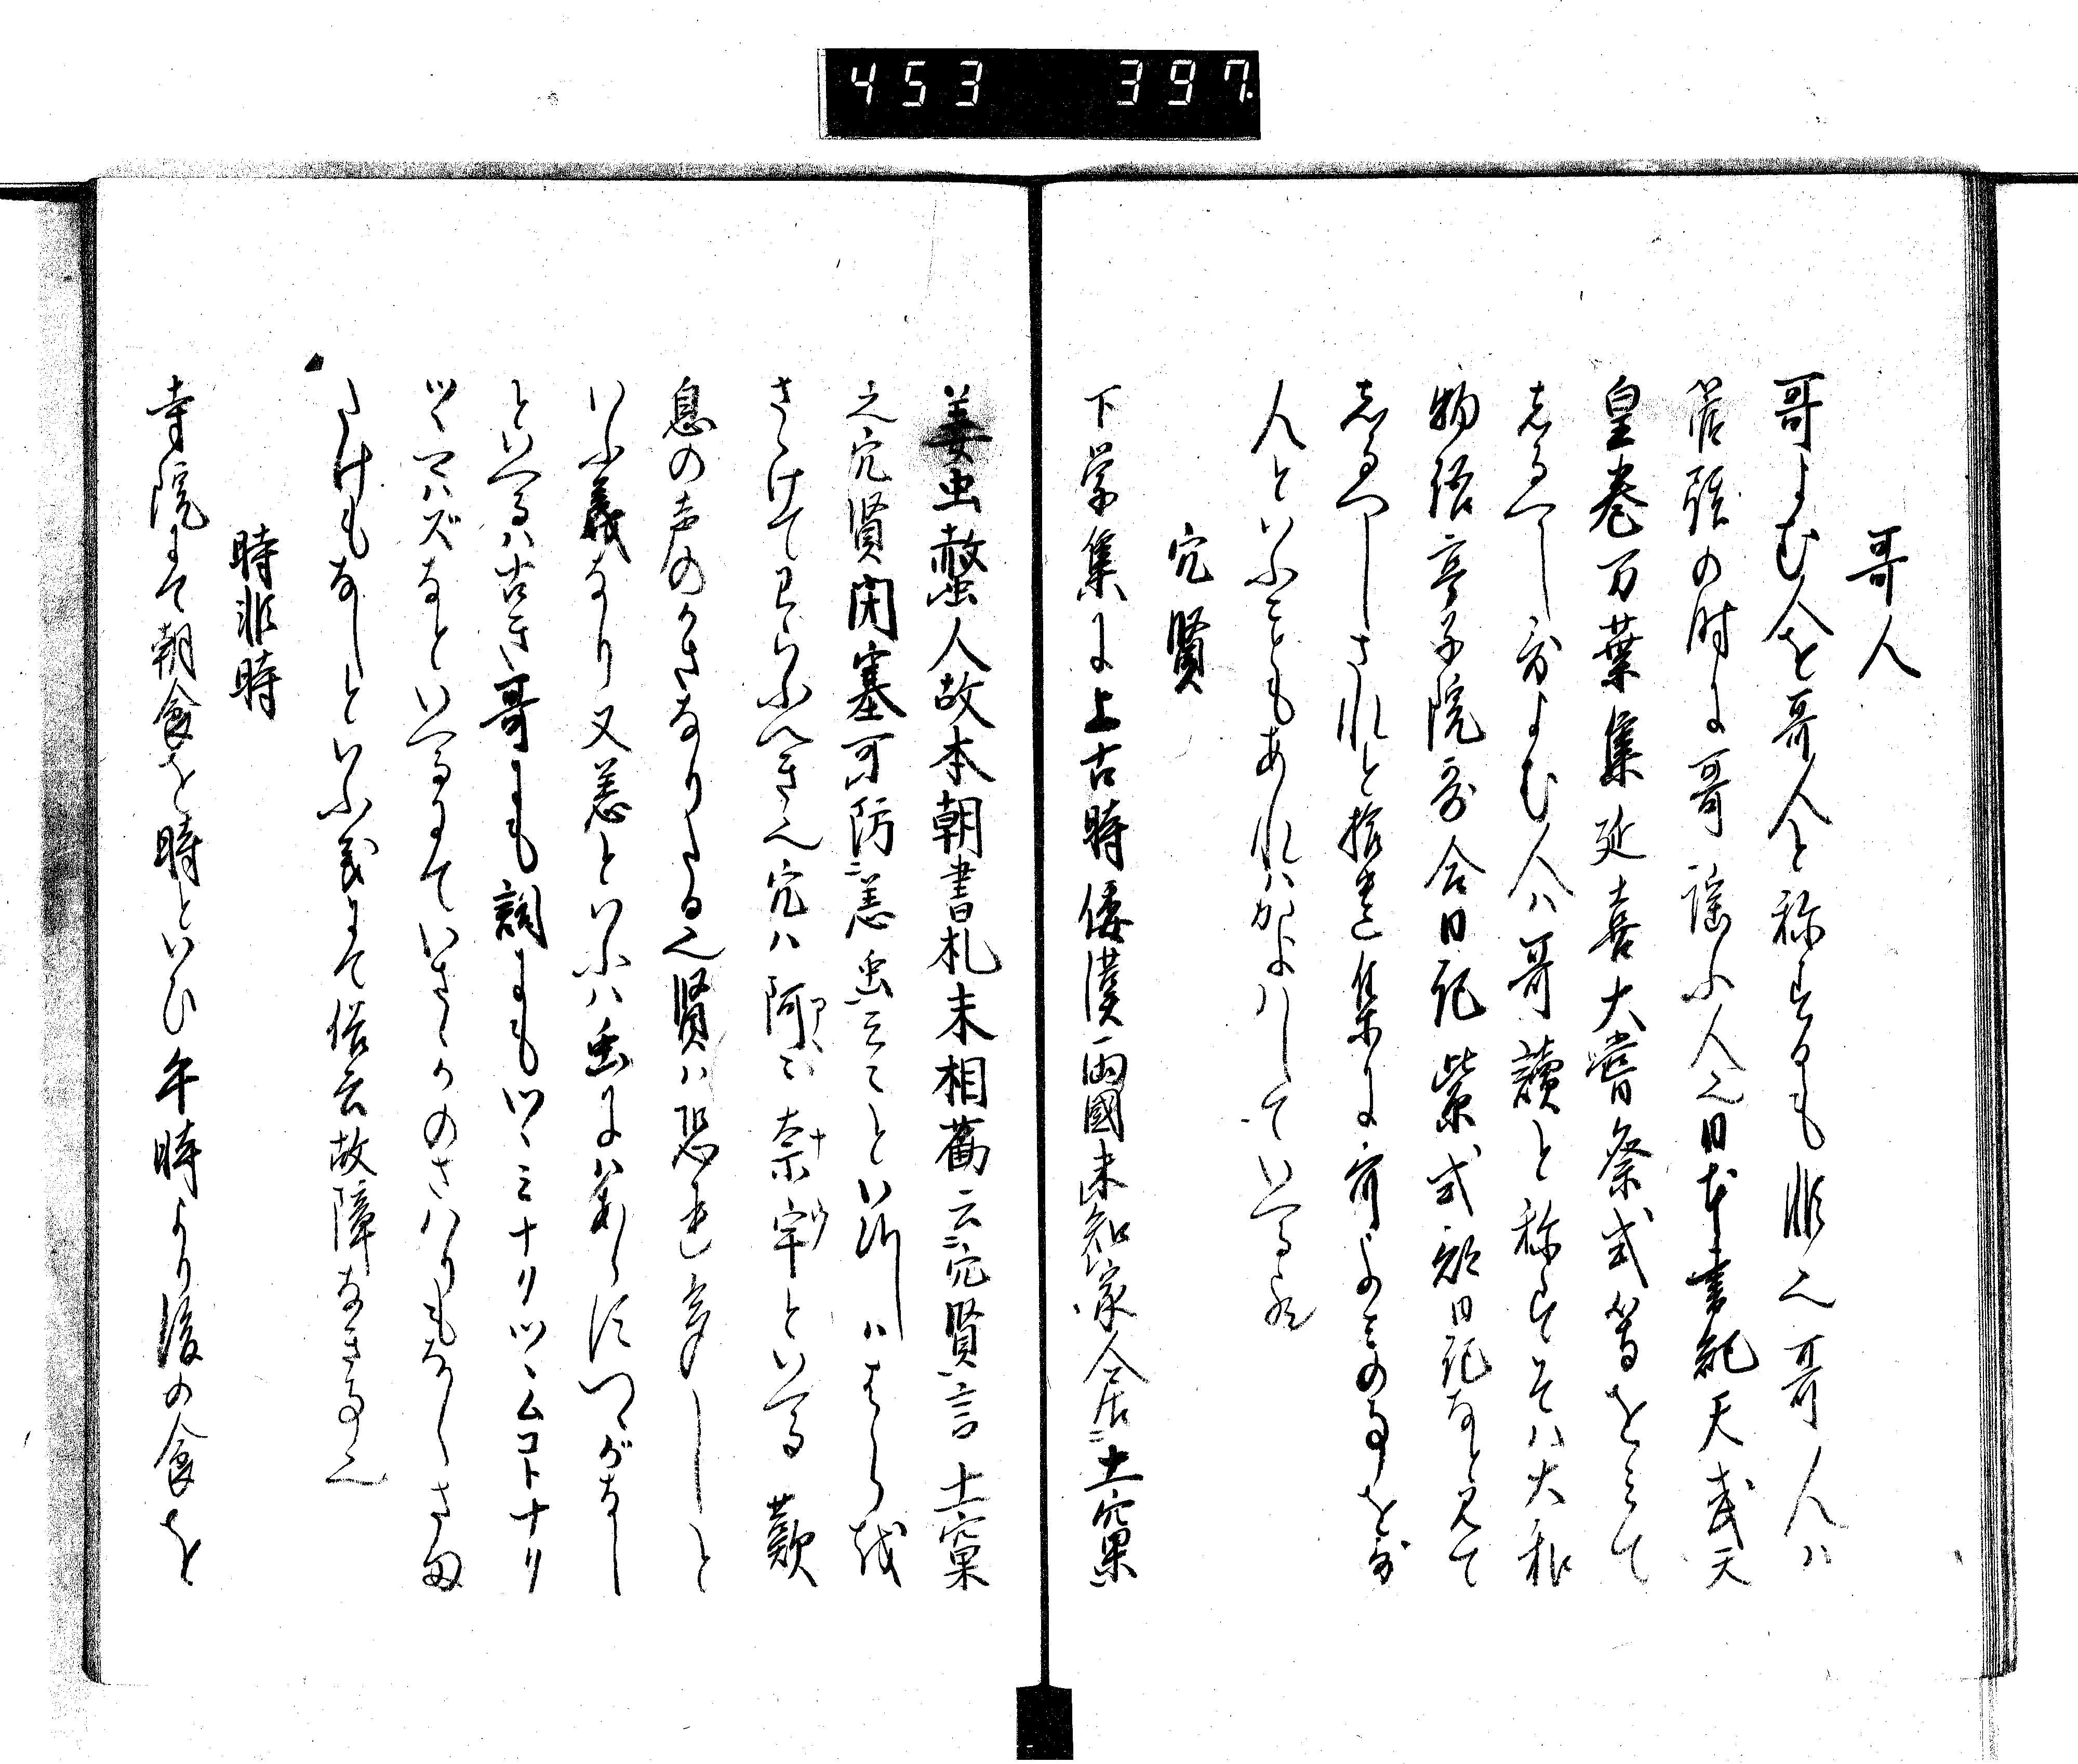 453 397.
哥人
哥よむ人を哥人と称するも非也哥人ハ
管弦の時に哥謡ふ人也日本書紀天武天
皇巻万葉集延喜大嘗祭式等をミて
しるへし哥よむ人ハ哥読と称すそハ大和
物語亭子院哥合日記紫式部日記なと見て
しるへしされと拾遺集に哥よミの事を哥
人といふこともあれハかよハしていへる
穴賢
下学集に上古時倭漢両國未知家人居ニ土窠
姜虫螫人故本朝書札末相勸云ニ穴賢言土窠
之穴賢閉塞可防ニ恙虫云々といへるハはらを
さゝけてわらふへき也穴ハ阿ゝ奈宇といへる歎
息の声のかさなりたる也賢ハ恐れ多しと
いふ義なり又恙といふハ虫にハあらすつゝがなし
といへるハ古き哥にも詞にもツヽミナリツヽムコトナリ
ツヽマハズなといへるにていさゝかのさハりもなくさま
たけもなしといふ義にて俗云故障なき事也
時非時
寺院にて朝食を時といひ午時より後の食を